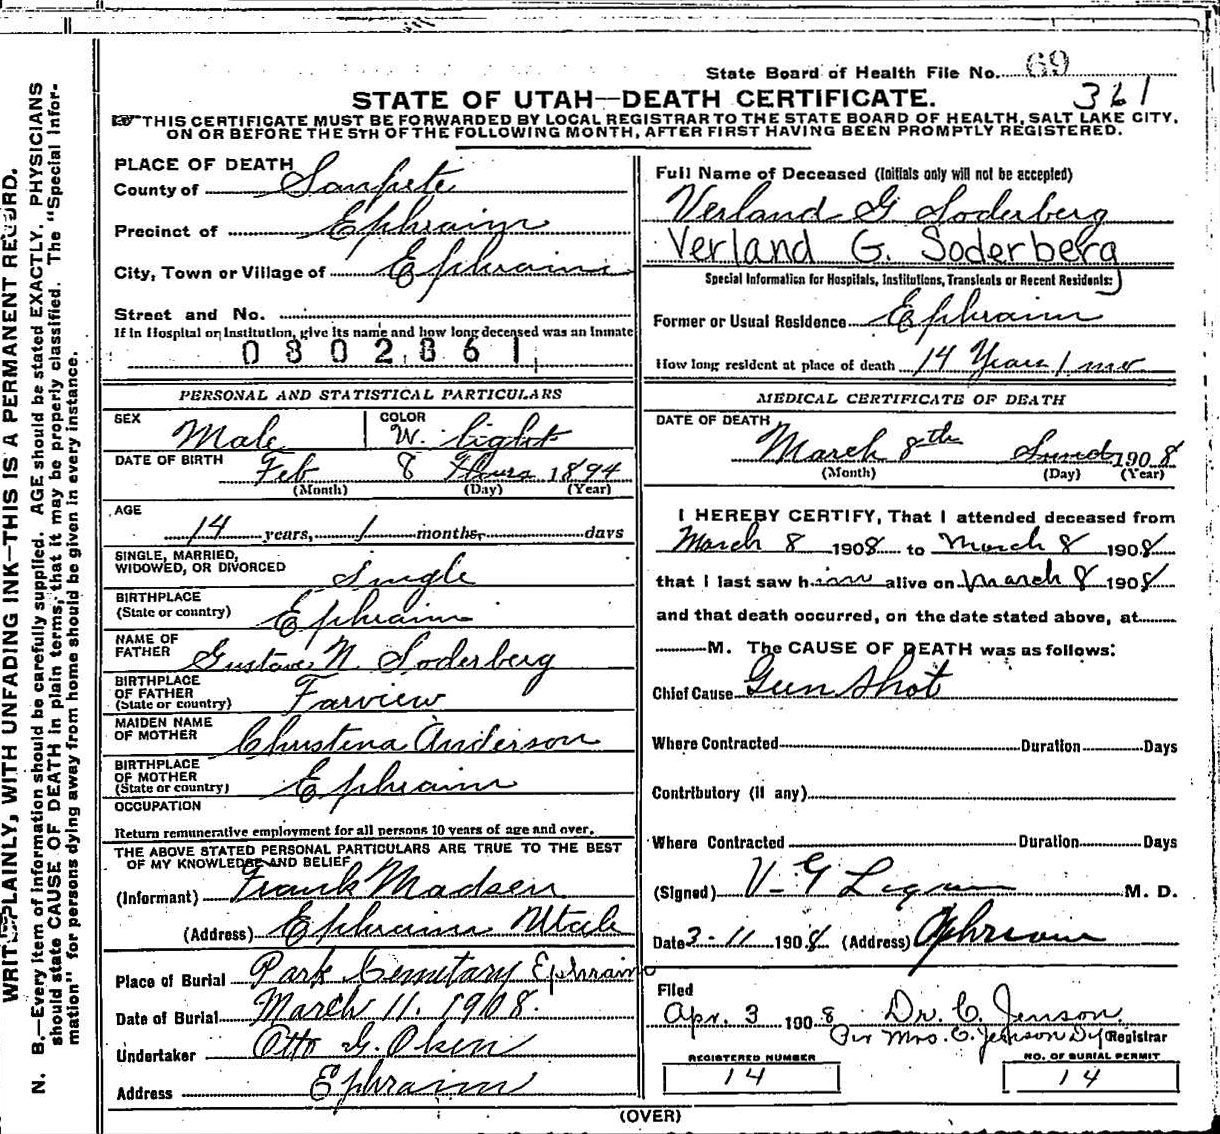 State Board of Health File No. 69
361
STATE OF UTAH—DEATH CERTIFICATE.
THIS CERTIFICATE MUST BE FORWARDED BY LOCAL REGISTRAR TO THE STATE BOARD OF HEALTH, SALT LAKE CITY,
ON OR BEFORE THE 5TH OF THE FOLLOWING MONTH, AFTER FIRST HAVING BEEN PROMPTLY REGISTERED.
WRITE PLAINLY, WITH UNFADING INK—THIS IS A PERMANENT RECORD.
N. B.—Every item of information should be carefully supplied. AGE should be stated EXACTLY. PHYSICIANS
should state CAUSE OF DEATH in plain terms, that it may be properly classified. The "Special Infor-
mation" for persons dying away from home should be given in every instance.
PLACE OF DEATH
County of Sanpete
Precinct of Ephraim
City, Town or Village of Ephraim
Street and No.
If in Hospital or Institution, give its name and how long deceased was an Inmate
0302861
PERSONAL AND STATISTICAL PARTICULARS
SEX Male COLOR W. light
DATE OF BIRTH Feb 8 Thurs 1894
(Month) (Day) (Year)
AGE
14 years, 1 months, days
SINGLE, MARRIED,
WIDOWED, OR DIVORCED Single
BIRTHPLACE
(State or country) Ephraim
NAME OF
FATHER Gustave N. Soderberg
BIRTHPLACE
OF FATHER
(State or country) Farview
MAIDEN NAME
OF MOTHER Christena Anderson
BIRTHPLACE
OF MOTHER
(State or country) Ephraim
OCCUPATION
Return remunerative employment for all persons 10 years of age and over.
THE ABOVE STATED PERSONAL PARTICULARS ARE TRUE TO THE BEST
OF MY KNOWLEDGE AND BELIEF
(Informant) Frank Madsen
(Address) Ephraim Utah
Place of Burial Park Cemetary Ephraim
Date of Burial March 11. 1908.
Undertaker Otto G.
Address Ephraim
Full Name of Deceased (Initials only will not be accepted)
Verland G Soderberg
Verland G. Soderberg
Special Information for Hospitals, Institutions, Transients or Recent Residents:
Former or Usual Residence Ephraim
How long resident at place of death 14 Years 1 mo
MEDICAL CERTIFICATE OF DEATH
DATE OF DEATH
March 8th Sund 1908
(Month) (Day) (Year)
I HEREBY CERTIFY, That I attended deceased from
March 8 1908 to March 8 1908
that I last saw him alive on March 8 1908
and that death occurred, on the date stated above, at
M. The CAUSE OF DEATH was as follows:
Chief Cause Gun shot
Where Contracted Duration Days
Contributory (if any)
Where Contracted Duration Days
(Signed) V- G M. D.
Date 3-11 1908 (Address) Ephraim
Filed
Apr. 3 1908 Dr. C. Jenson
Per Mrs. C. Jenson Dy Registrar
REGISTERED NUMBER
14
NO. OF BURIAL PERMIT
14
(OVER)